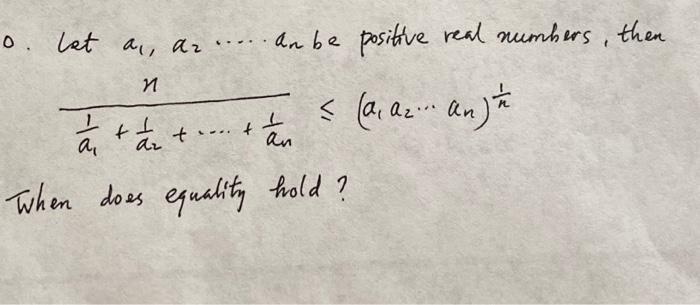 0. Let a₁, a₂ ..... aₙ be positive real numbers, then
n / (1/a₁ + 1/a₂ + .... + 1/aₙ) ≤ (a₁ a₂ ... aₙ)^(1/n)
When does equality hold?